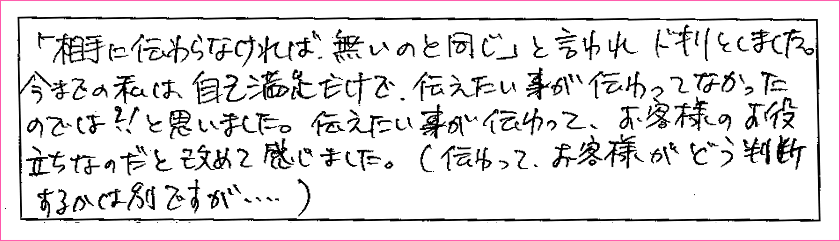 「相手に伝わらなければ、無いのと同じ」と言われ ドキリとしました。
今までの私は、自己満足だけで、伝えたい事が伝わってなかった
のでは?!と思いました。伝えたい事が伝わって、お客様のお役
立ちなのだと改めて感じました。(伝わって、お客様がどう判断
するかは別ですが……)